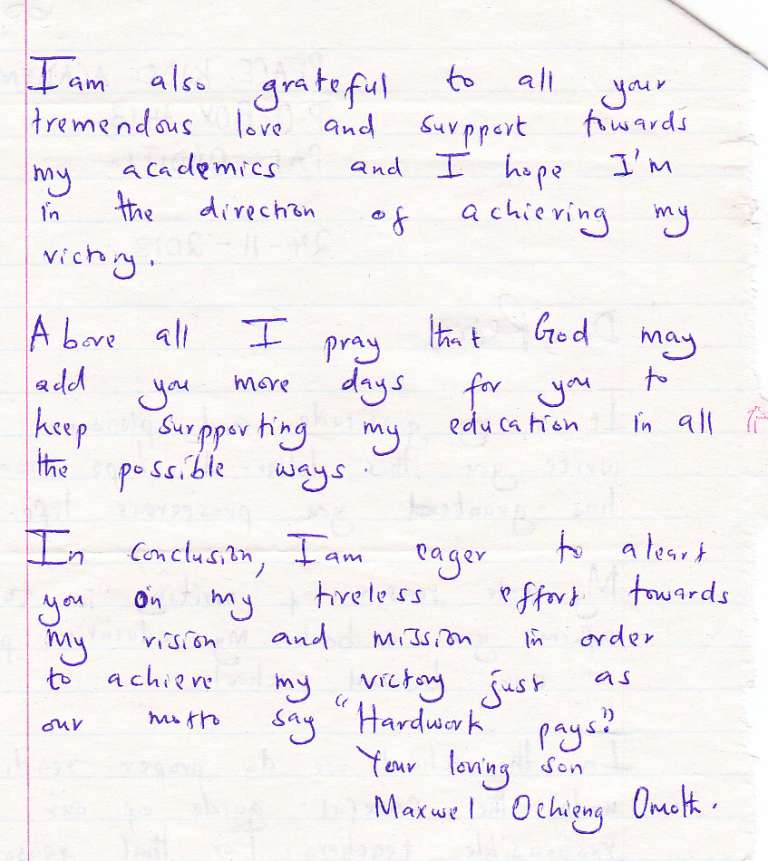 I am also grateful to all your
tremendous love and surpport towards
my academics and I hope I'm
in the direction of achieving my
victory.
Above all I pray that God may
add you more days for you to
keep surpporting my education in all
the possible ways.
In conclusion, I am eager to aleart
you on my tireless effort towards
my vision and mission in order
to achieve my victory just as
our motto say "Hardwork pays."
Your loving son
Maxwel Ochieng Omoth.